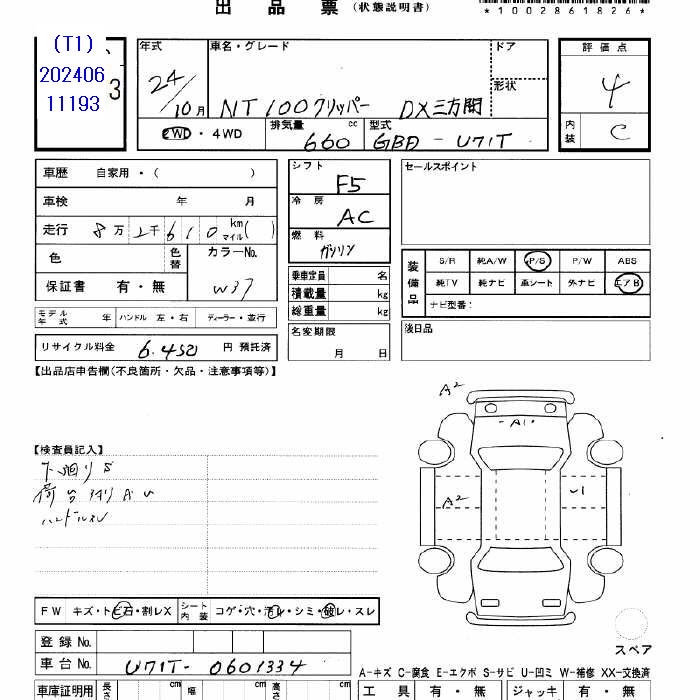 出品票 (状態説明書)
*1002861826*
(T1)
202406
11193
3
年式 車名・グレード ドア 評価点
24/10月 NT100クリッパー DX三方開 形状 4
2WD・4WD 排気量 cc 660 型式 GBD-U71T 内装 C
車歴 自家用・( ) シフト F5 セールスポイント
車検 年 月 冷房 AC
走行 8万2千610 km マイル( ) 燃料 ガソリン
色 色替 カラーNo. W37
保証書 有・無
乗車定員 名
積載量 kg
総重量 kg
装備品 S/R 純A/W P/S P/W ABS
純TV 純ナビ 革シート 外ナビ エアB
ナビ型番:
モデル年式 年 ハンドル 左・右 ディーラー・並行
名変期限 月 日
後日品
リサイクル料金 6,450 円 預託済
【出品店申告欄(不良箇所・欠品・注意事項等)】
A2
A1
【検査員記入】
下廻りS
荷台 AU
ハンドルスレ
A2
U1
FW キズ・トビ石・割レX シート内装 コゲ・穴・汚レ・シミ・破レ・スレ
登録No.
車台No. U71T-0601334
スペア
A-キズ C-腐食 E-エクボ S-サビ U-凹ミ W-補修 XX-交換済
車庫証明用 長さ cm 幅 cm 高さ cm 工具 有・無 ジャッキ 有・無